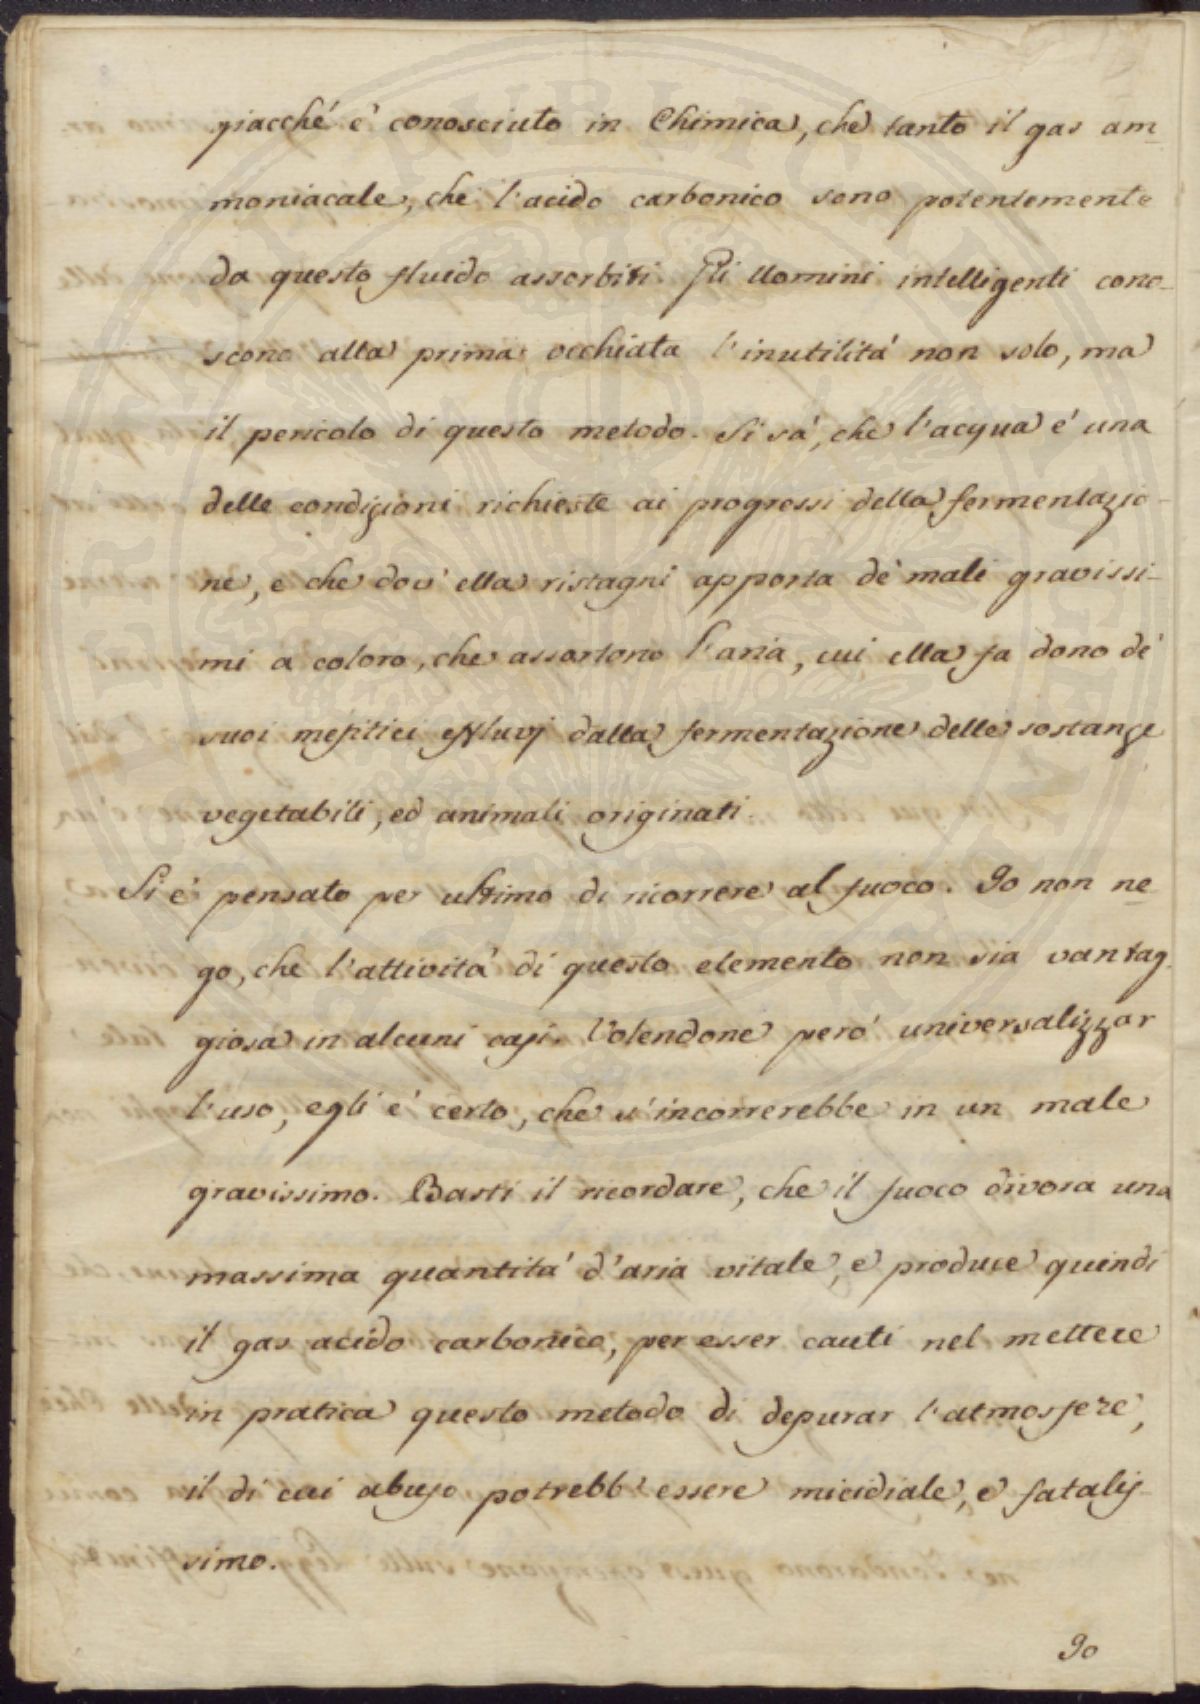 giacché é conosciuto in Chimica, che tanto il gas am
moniacale, che l'acido carbonico sono potentemente
da questo fluido assorbiti. Gli Uomini intelligenti cono-
scono alla prima occhiata l'inutilitá non solo, ma
il pericolo di questo metodo. Si sá, che l'acqua é una
delle condizioni richieste ai progressi della fermentazio-
ne, e che dov' ella ristagni apporta de' mali gravissi-
mi a coloro, che assorbono l'aria, cui ella fa dono de'
suoi mefitici effluvj dalla fermentazione delle sostanze
vegetabili, ed animali originati.
Si é pensato per ultimo di ricorrere al fuoco. Io non ne
go, che l'attivitá di questo elemento non sia vantag-
giosa in alcuni casi. Volendone peró universalizzar
l'uso, egli é certo, che s'incorrerebbe in un male
gravissimo. Basti il ricordare, che il fuoco divora una
massima quantitá d'aria vitale, e produce quindi
il gas acido carbonico, per esser cauti nel mettere
in pratica questo metodo di depurar l'atmosfere,
il di cui abuso potrebb'essere micidiale, e fatalis-
simo.
Io